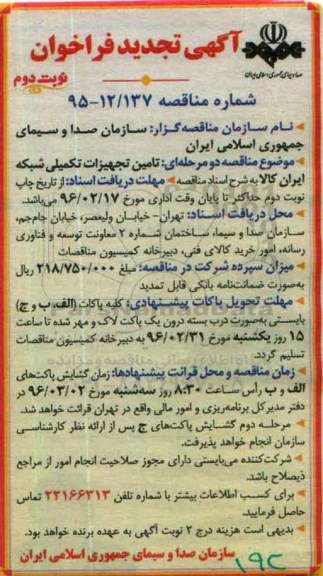 آگهی تجدید فراخوان
صدا و سیمای جمهوری اسلامی ایران
نوبت دوم
شماره مناقصه ۱۲/۱۳۷-۹۵
نام سازمان مناقصه گزار: سازمان صدا و سیمای
جمهوری اسلامی ایران
موضوع مناقصه دو مرحله‌ای: تامین تجهیزات تکمیلی شبکه
ایران کالا به شرح اسناد مناقصه مهلت دریافت اسناد: از تاریخ چاپ
نوبت دوم حداکثر تا پایان وقت اداری مورخ ۹۶/۰۲/۱۷ می‌باشد.
محل دریافت اسناد: تهران- خیابان ولیعصر، خیابان جام‌جم،
سازمان صدا و سیما، ساختمان شماره ۲ معاونت توسعه و فناوری
رسانه، امور خرید کالای فنی، دبیرخانه کمیسیون مناقصات
میزان سپرده شرکت در مناقصه: مبلغ ۲۱۸/۷۵۰/۰۰۰ ریال
به‌صورت ضمانت‌نامه بانکی قابل تمدید
مهلت تحویل پاکات پیشنهادی: کلیه پاکات (الف، ب و ج)
بایستی به‌صورت درب بسته درون یک پاکت لاک و مهر شده تا ساعت
۱۵ روز یکشنبه مورخ ۹۶/۰۲/۳۱ به دبیرخانه کمیسیون مناقصات
تسلیم گردد.
زمان مناقصه و محل قرائت پیشنهادها: زمان گشایش پاکت‌های
الف و ب رأس ساعت ۸:۳۰ روز سه‌شنبه مورخ ۹۶/۰۳/۰۲ در
دفتر مدیر کل برنامه‌ریزی و امور مالی واقع در تهران قرائت خواهد شد.
مرحله دوم گشایش پاکت‌های ج پس از ارائه نظر کارشناسی
سازمان انجام خواهد پذیرفت.
شرکت‌کننده می‌بایستی دارای مجوز صلاحیت انجام امور از مراجع
ذیصلاح باشد.
برای کسب اطلاعات بیشتر با شماره تلفن ۲۲۱۶۶۳۱۳ تماس
حاصل فرمایید.
بدیهی است هزینه درج ۲ نوبت آگهی به عهده برنده خواهد بود.
سازمان صدا و سیمای جمهوری اسلامی ایران
۱۹۲